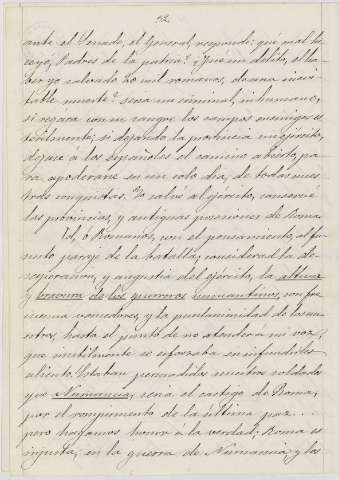 52
ante el Senado, el General, responde: qué mal he
yo, Padres de la patria? ¿Qué un delito, el ha
ber yo salvado 20 mil romanos, de una inevi
table muerte? seria un criminal, inhumano,
si regára con su sangre los campos enemigos i
nutilmente; si dejando la provincia sin ejército,
dejase á los españoles el camino abierto, pa
ra apoderarse en un solo dia, de todas nues
tras conquistas. Yo salvé al ejército, conservé
las provincias, y antiguas posesiones de Roma.
Id, ó Romanos, con el pensamiento, al fu
nesto parage de la batalla, considerad la de
sesperacion, y angustia del ejército, la altivez
y bravura de los guerreros numantinos, con fre
cuencia vencedores, y la pusilanimidad de los nu
estros, hasta el punto de no atender á mi voz,
que inutilmente se esforzaba en infundirles
aliento. Estaban persuadidos nuestros soldados
que Numancia, seria el castigo de Roma,
por el rompimento de la última paz...
pero hagamos honor á la verdad; Roma es
injusta, en la guerra de Numancia; y los